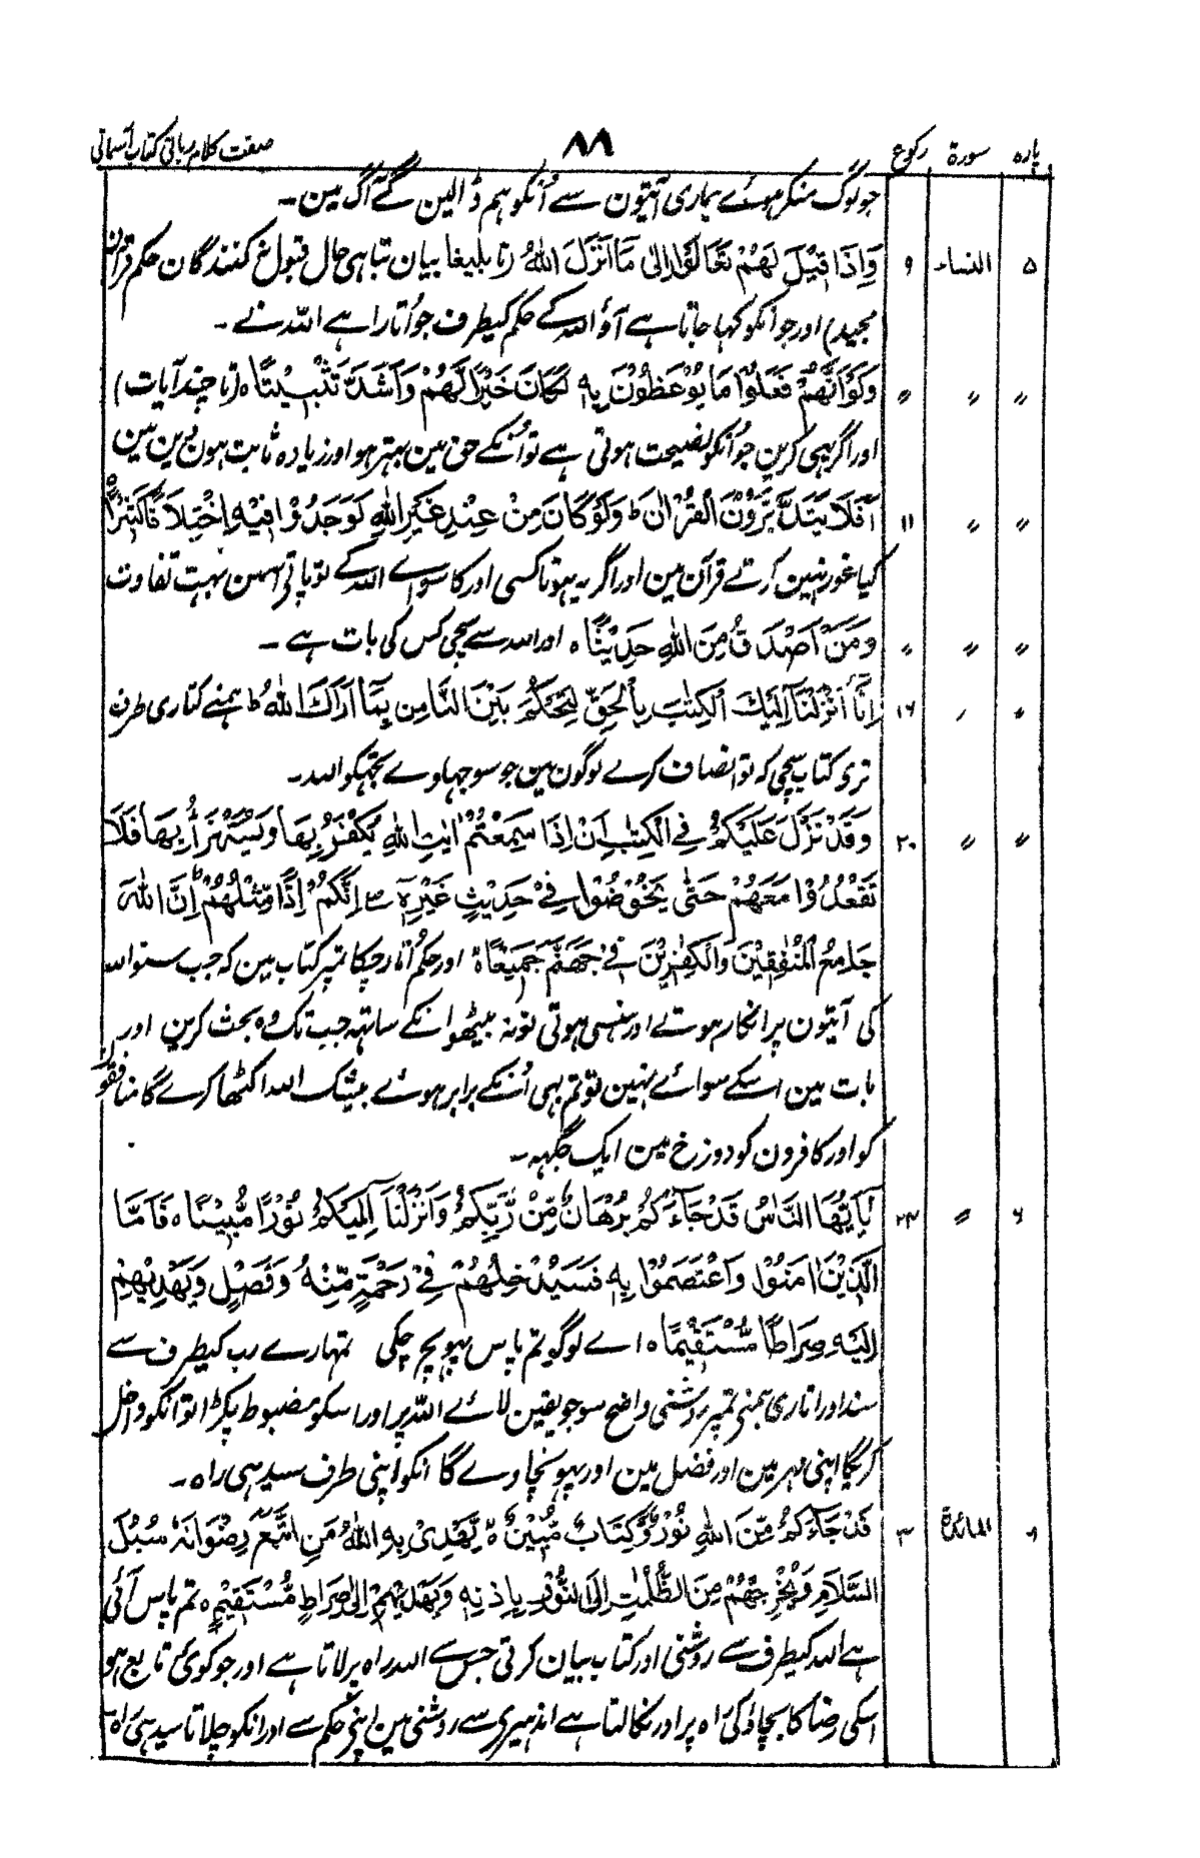 پارہ سورۃ رکوع ۸۸ صفت کلام ربانی کتاب آسمانی
جو لوگ منکر ہوئے ہماری آیتون سے اُنکو ہم ڈالین گے آگ مین۔
۵ النساء ۹ وَاِذَا قِيْلَ لَهُمْ تَعَالَوْا اِلٰى مَآ اَنْزَلَ اللهُ (تا بلیغا بیان تباہی حال قبول کنندگان حکم قرآن
مجید) اور جو انکو کہا جاتا ہے آؤ اللہ کے حکم کیطرف جو اُتارا ہے اللہ نے۔
〃 〃 〃 وَلَوْ اَنَّهُمْ فَعَلُوْا مَا يُوْعَظُوْنَ بِهٖ لَكَانَ خَيْرًا لَّهُمْ وَاَشَدَّ تَثْبِيْتًا ہ (تا چند آیات)
اور اگر یہی کرین جو اُنکو نصیحت ہوتی ہے تو اُنکے حق مین بہتر ہو اور زیادہ ثابت ہون دین مین
〃 〃 ۱۱ اَفَلَا يَتَدَبَّرُوْنَ الْقُرْاٰنَ ط وَلَوْ كَانَ مِنْ عِنْدِ غَيْرِ اللهِ لَوَجَدُوْا فِيْهِ اخْتِلَافًا كَثِيْرًا
کیا غور نہین کرتے قرآن مین اور اگر یہ ہوتا کسی اور کا سوائے اللہ کے تو پاتے اسمین بہت تفاوت
〃 〃 〃 وَمَنْ اَصْدَقُ مِنَ اللهِ حَدِيْثًا ہ اور اللہ سے سچی کس کی بات ہے۔
〃 〃 ۱۶ اِنَّآ اَنْزَلْنَآ اِلَيْكَ الْكِتٰبَ بِالْحَقِّ لِتَحْكُمَ بَيْنَ النَّاسِ بِمَآ اَرٰكَ اللهُ ط ہمنے اُتاری طرف
تری کتاب سچی کہ تو انصاف کرے لوگون مین جو سوجہاوے تجہکو اللہ۔
〃 〃 ۲۰ وَقَدْ نَزَّلَ عَلَيْكُمْ فِي الْكِتٰبِ اَنْ اِذَا سَمِعْتُمْ اٰيٰتِ اللهِ يُكْفَرُ بِهَا وَيُسْتَهْزَاُ بِهَا فَلَا
تَقْعُدُوْا مَعَهُمْ حَتّٰى يَخُوْضُوْا فِيْ حَدِيْثٍ غَيْرِهٖٓ اِنَّكُمْ اِذًا مِّثْلُهُمْ ط اِنَّ اللهَ
جَامِعُ الْمُنٰفِقِيْنَ وَالْكٰفِرِيْنَ فِيْ جَهَنَّمَ جَمِيْعًا ہ اور حکم اُتار چکا تمپر کتاب مین کہ جب سنو اللہ
کی آیتون پر انکار ہوتے اور ہنسی ہوتی تو نہ بیٹھو انکے ساتہہ جب تک وہ بحث کرین اور
بات مین اسکے سوائے نہین تو تم بہی اُنکے برابر ہوئے بیشک اللہ اکٹھا کرے گا منافقو
کو اور کافرون کو دوزخ مین ایک جگہہ۔
۶ 〃 ۲۳ يٰٓاَيُّهَا النَّاسُ قَدْ جَآءَكُمْ بُرْهَانٌ مِّنْ رَّبِّكُمْ وَاَنْزَلْنَآ اِلَيْكُمْ نُوْرًا مُّبِيْنًا ہ فَاَمَّا
الَّذِيْنَ اٰمَنُوْا وَاعْتَصَمُوْا بِهٖ فَسَيُدْخِلُهُمْ فِيْ رَحْمَةٍ مِّنْهُ وَفَضْلٍ وَّيَهْدِيْهِمْ
اِلَيْهِ صِرَاطًا مُّسْتَقِيْمًا ہ اے لوگو تم پاس پہونچ چکی تمہارے رب کیطرف سے
سند اور اتاری ہمنے تمپر روشنی واضح سو جو یقین لائے اللہ پر اور اسکو مضبوط پکڑا تو انکو داخل
کریگا اپنی مہر مین اور فضل مین اور پہونچاوے گا انکو اپنی طرف سیدہی راہ۔
۶ المائدۃ ۳ قَدْ جَآءَكُمْ مِّنَ اللهِ نُوْرٌ وَّكِتَابٌ مُّبِيْنٌ ہ يَّهْدِيْ بِهِ اللهُ مَنِ اتَّبَعَ رِضْوَانَهٗ سُبُلَ
السَّلَامِ وَيُخْرِجُهُمْ مِّنَ الظُّلُمٰتِ اِلَى النُّوْرِ بِاِذْنِهٖ وَيَهْدِيْهِمْ اِلٰى صِرَاطٍ مُّسْتَقِيْمٍ ہ تم پاس آئی
ہے اللہ کیطرف سے روشنی اور کتاب بیان کرتی جس سے اللہ راہ پر لاتا ہے اور جو کوئی تابع ہو
اسکی رضا کا بچاؤ کی راہ پر اور نکالتا ہے اندہیری سے روشنی مین اپنے حکم سے اور انکو چلاتا سیدہی راہ